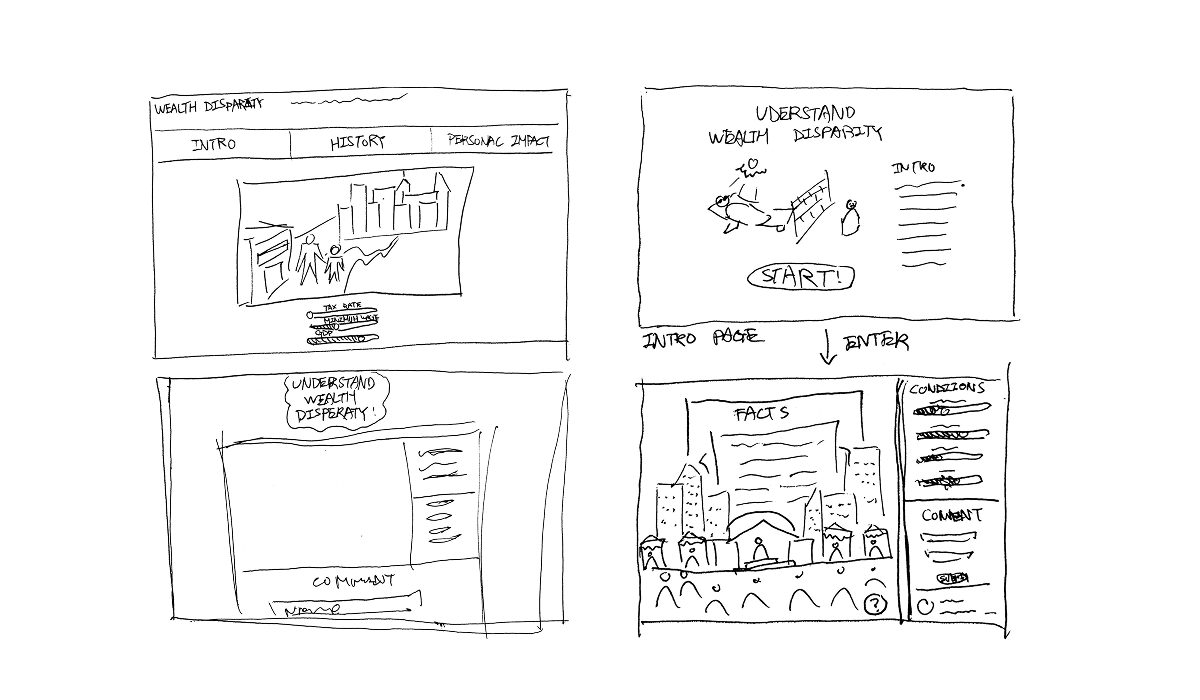 WEALTH DISPARATY
INTRO
HISTORY
PERSONAL IMPACT
TAX RATE
MINIMUM WAGE
GDP
UNDERSTAND
WEALTH
DISPERATY!
COMMENT
Name
UDERSTAND
WEALTH DISPARITY
INTRO
START!
INTRO PAGE
ENTER
FACTS
CONDIIONS
COMMENT
?